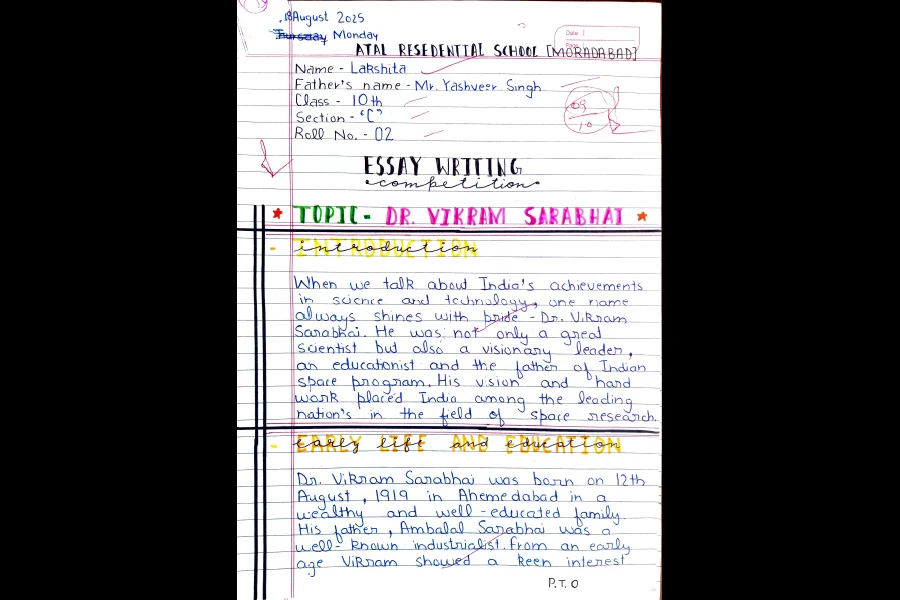 18August 2025
Thursday Monday
Date
ATAL RESEDENTIAL SCHOOL [MORADABAD]
Name - Lakshita
Father's name - Mr. Yashveer Singh
Class - 10th
09
Section - "C"
10
Roll No. - 02
ESSAY WRITING
competition
TOPIC- DR. VIKRAM SARABHAI
- introduction
When we talk about India's achievements
in science and technology, one name
always shines with pride - Dr. Vikram
Sarabhai. He was not only a great
scientist but also a visionary leader,
an educationist and the father of Indian
space program. His vision and hard
work placed India among the leading
nation's in the field of space research.
- EARLY LIFE AND EDUCATION
Dr. Vikram Sarabhai was born on 12th
August, 1919 in Ahemedabad in a
wealthy and well-educated family.
His father, Ambalal Sarabhai was a
well-known industrialist. From an early
age Vikram showed a keen interest
P.T.O